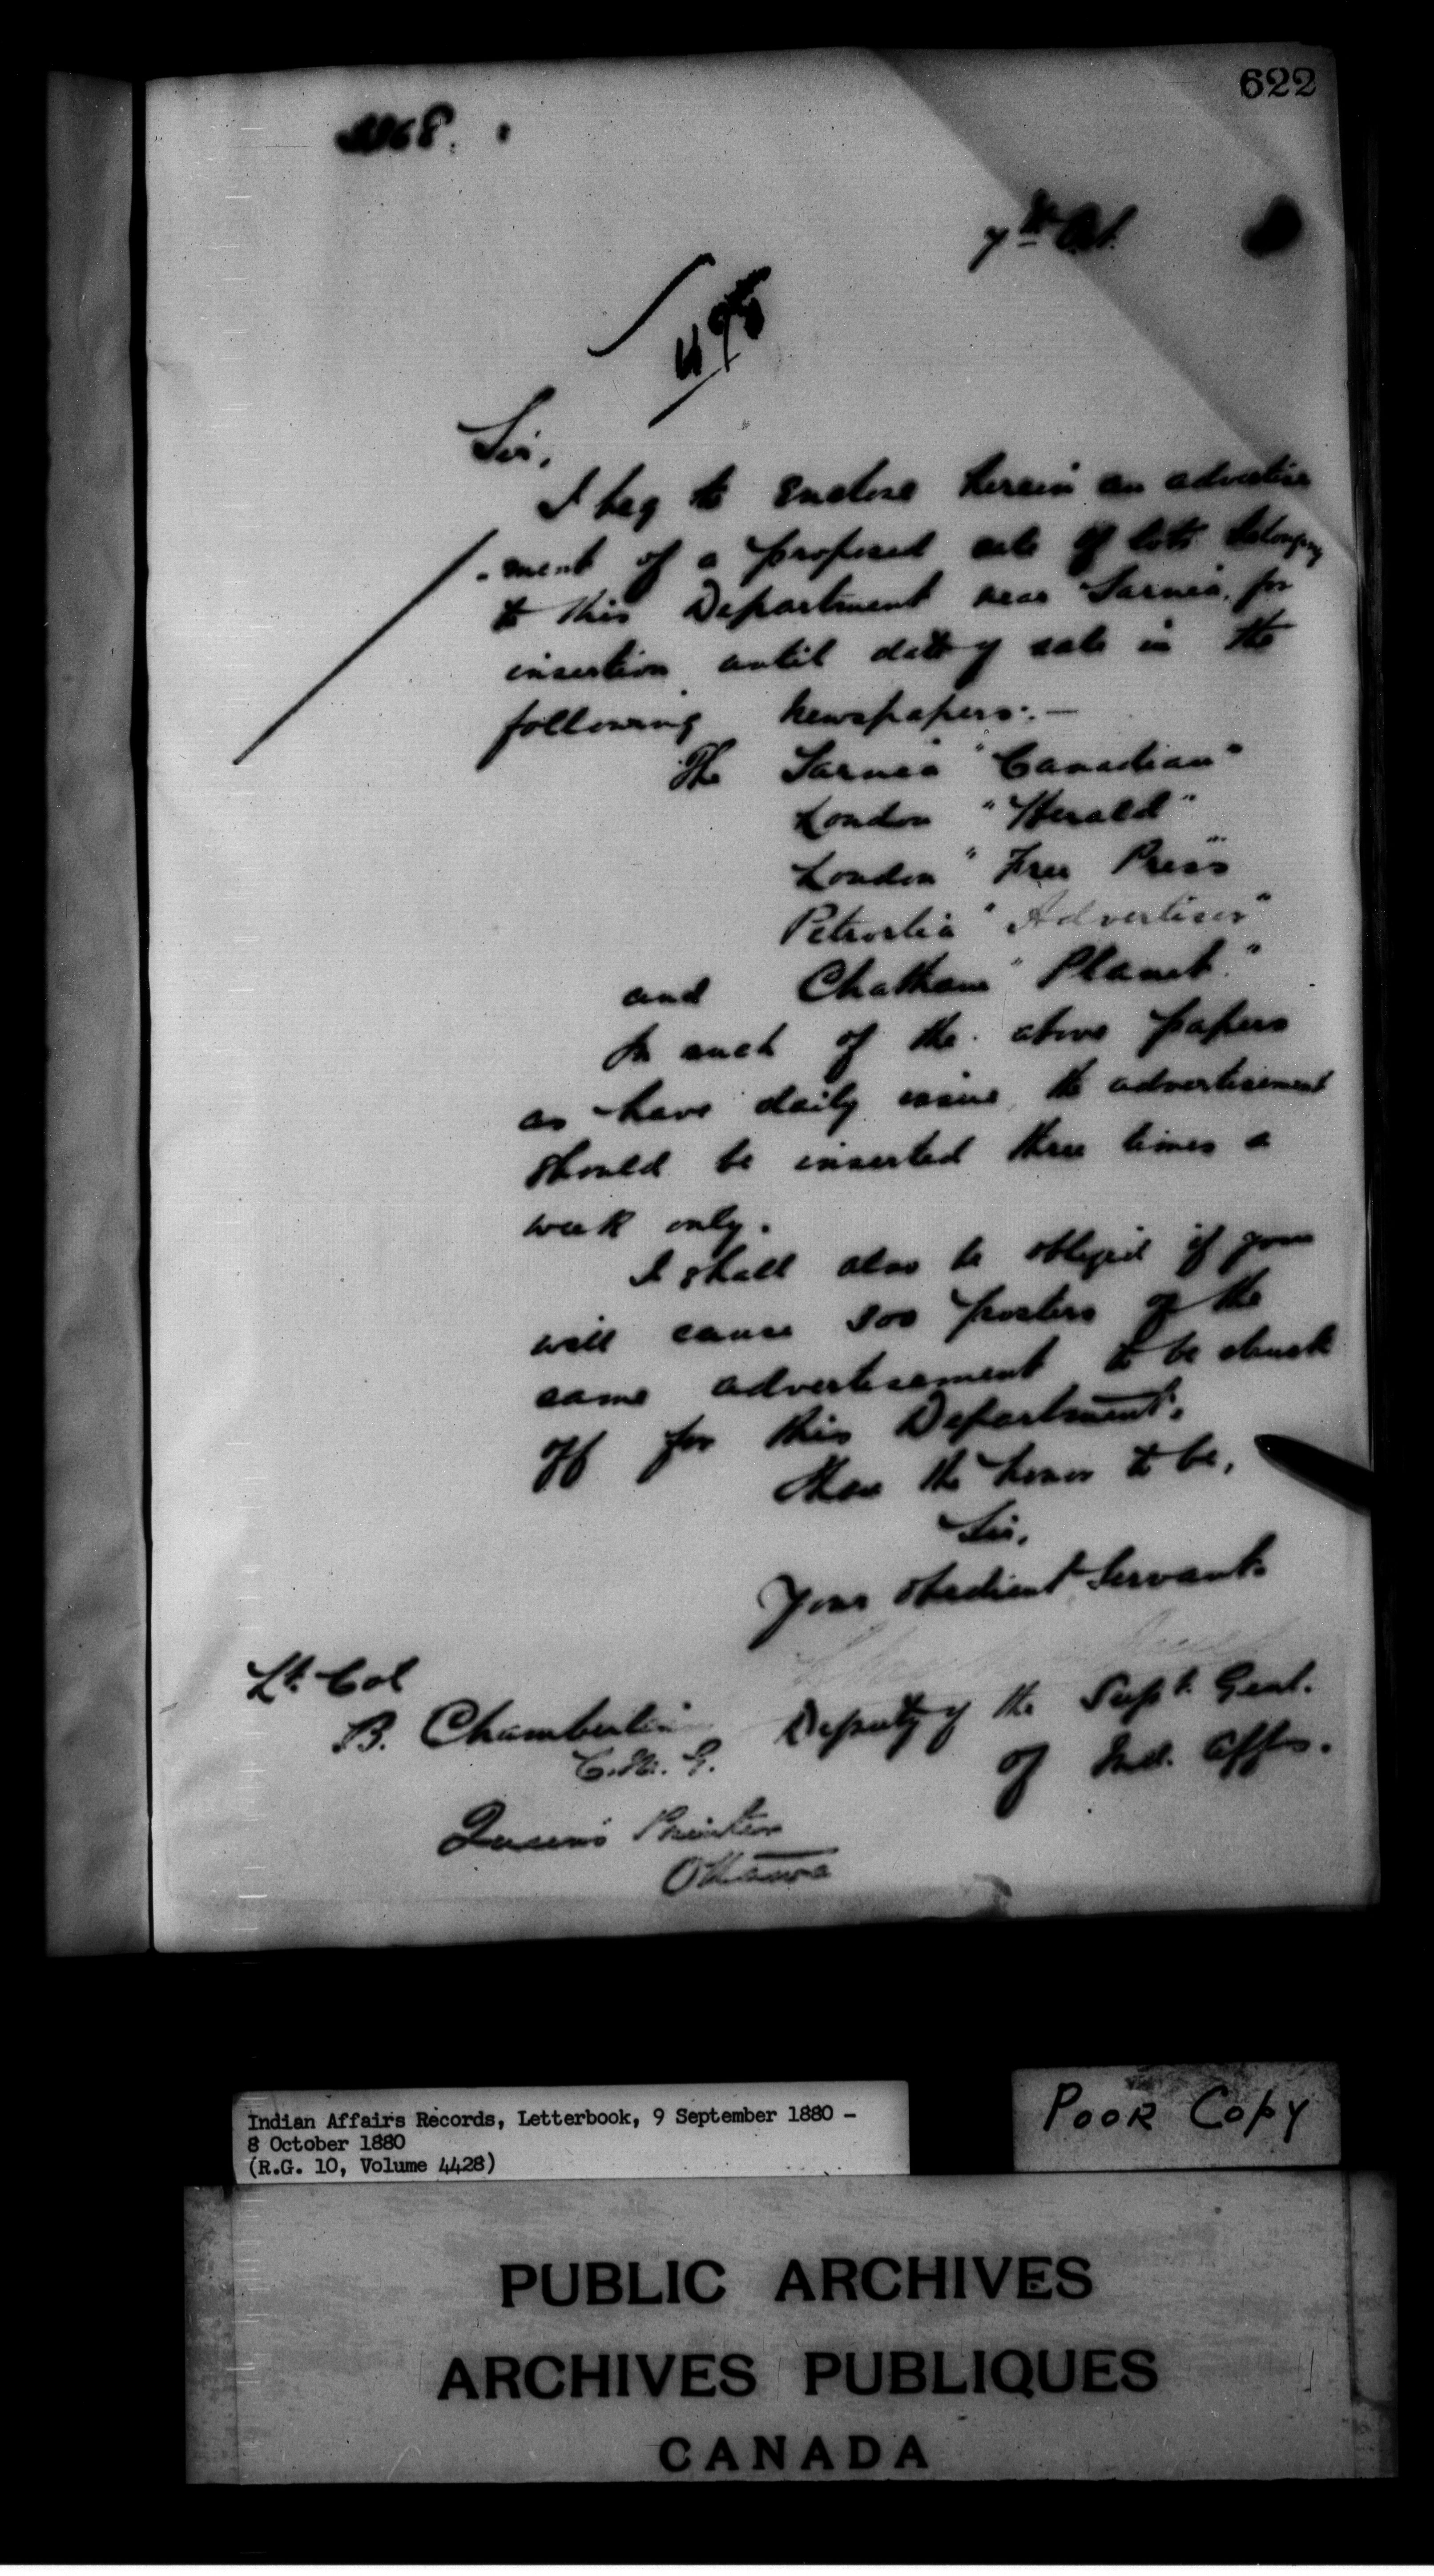 622
7th Oct.
Sir,
I beg to enclose herein an advertise
-ment of a proposed sale of lots belonging
to this Department near Sarnia, for
insertion until date of sale in the
following newspapers:—
The Sarnia "Canadian"
London "Herald"
London "Free Press"
Petrolia "Advertiser"
and Chatham "Planet."
In such of the above papers
as have daily issue, the advertisement
should be inserted three times a
week only.
I shall also be obliged if you
will cause posters of the
same advertisement to be struck
off for this Department.
I have the honor to be,
Sir,
Your obedient Servant.
Lt. Col
B. Chamberlin Deputy of the Supt. Genl.
C.M.G. of Ind. Affrs.
Queen's Printer
Ottawa
Indian Affairs Records, Letterbook, 9 September 1880 –
8 October 1880
(R.G. 10, Volume 4428)
POOR COPY
PUBLIC ARCHIVES
ARCHIVES PUBLIQUES
CANADA